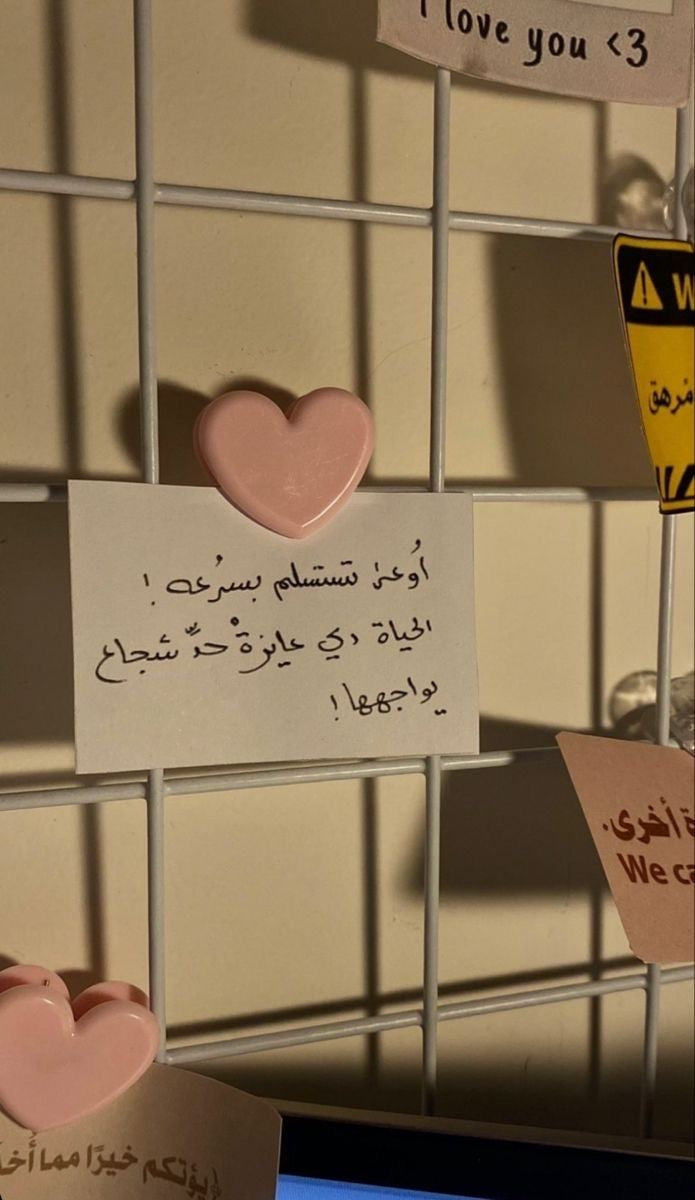 I love you <3
W
مُرهق
أُوعىٰ تستسلم بسرُعه !
الحياة دي عايزةْ حدٍّ شجاع
يواجهها !
ة أخرى.
We ca
يؤتكم خيرًا مما أُخذ